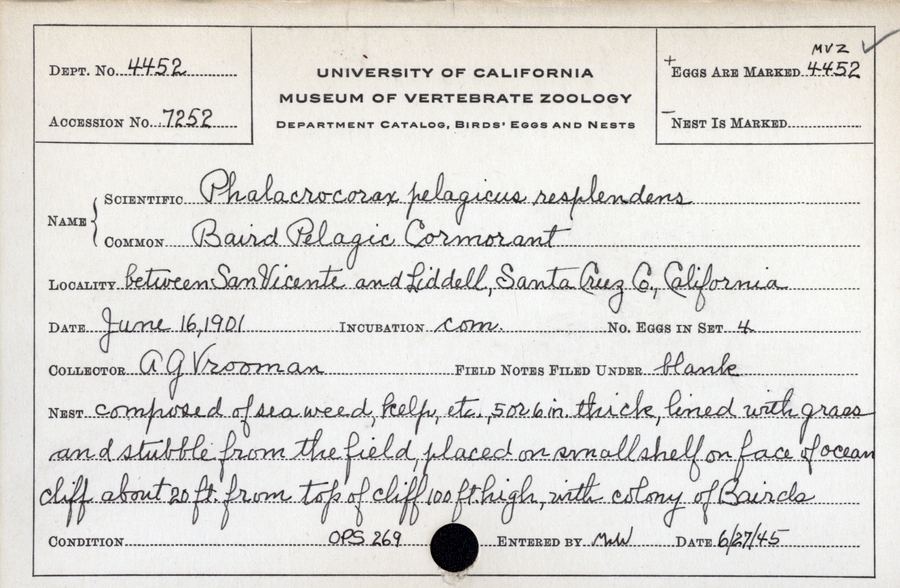 MVZ ✓
DEPT. No. 4452
UNIVERSITY OF CALIFORNIA
+EGGS ARE MARKED 4452
MUSEUM OF VERTEBRATE ZOOLOGY
ACCESSION No. 7252
DEPARTMENT CATALOG, BIRDS' EGGS AND NESTS
—NEST IS MARKED
NAME { SCIENTIFIC Phalacrocorax pelagicus resplendens
COMMON Baird Pelagic Cormorant
LOCALITY between San Vicente and Liddell, Santa Cruz Co., California
DATE June 16, 1901 INCUBATION com. No. EGGS IN SET 4
COLLECTOR A G Vrooman FIELD NOTES FILED UNDER blank
NEST composed of sea weed, kelp, etc., 5 or 6 in. thick, lined with grass
and stubble from the field, placed on small shelf on face of ocean
cliff about 20 ft. from top of cliff 100 ft. high, with colony of Bairds
CONDITION OPS 269 ENTERED BY DATE 6/27/45